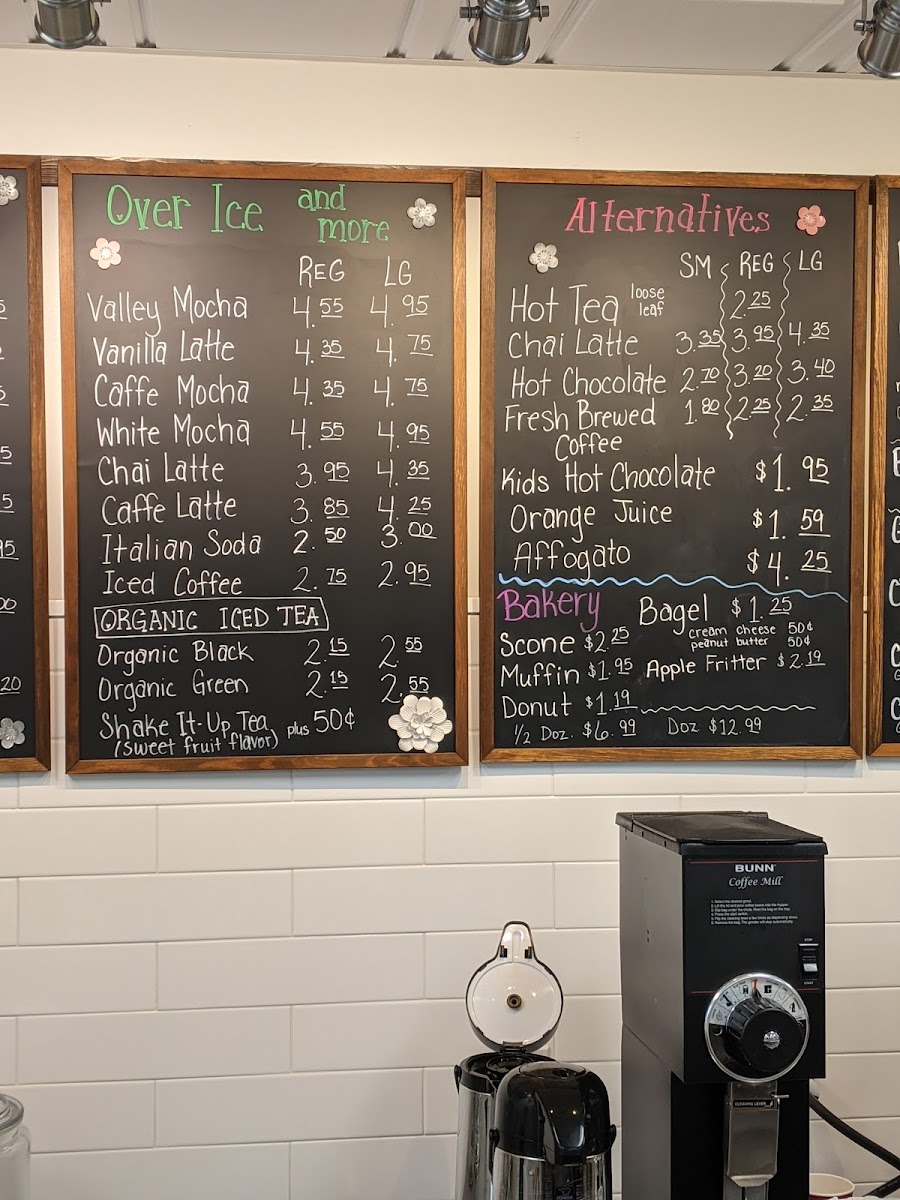 5
5
5
5
95
00
20
Over Ice and more
REG LG
Valley Mocha 4.55 4.95
Vanilla Latte 4.35 4.75
Caffe Mocha 4.35 4.75
White Mocha 4.55 4.95
Chai Latte 3.95 4.35
Caffe Latte 3.85 4.25
Italian Soda 2.50 3.00
Iced Coffee 2.75 2.95
ORGANIC ICED TEA
Organic Black 2.15 2.55
Organic Green 2.15 2.55
Shake It-Up Tea plus 50¢
(sweet fruit flavor)
Alternatives
SM REG LG
Hot Tea loose leaf 2.25
Chai Latte 3.35 3.95 4.35
Hot Chocolate 2.70 3.20 3.40
Fresh Brewed 1.80 2.25 2.35
Coffee
Kids Hot Chocolate $1.95
Orange Juice $1.59
Affogato $4.25
Bakery
Bagel $1.25
cream cheese 50¢
peanut butter 50¢
Scone $2.25
Muffin $1.95
Apple Fritter $2.19
Donut $1.19
1/2 Doz. $6.99 Doz $12.99
BUNN
Coffee Mill
STOP
START
CLEANING LEVER